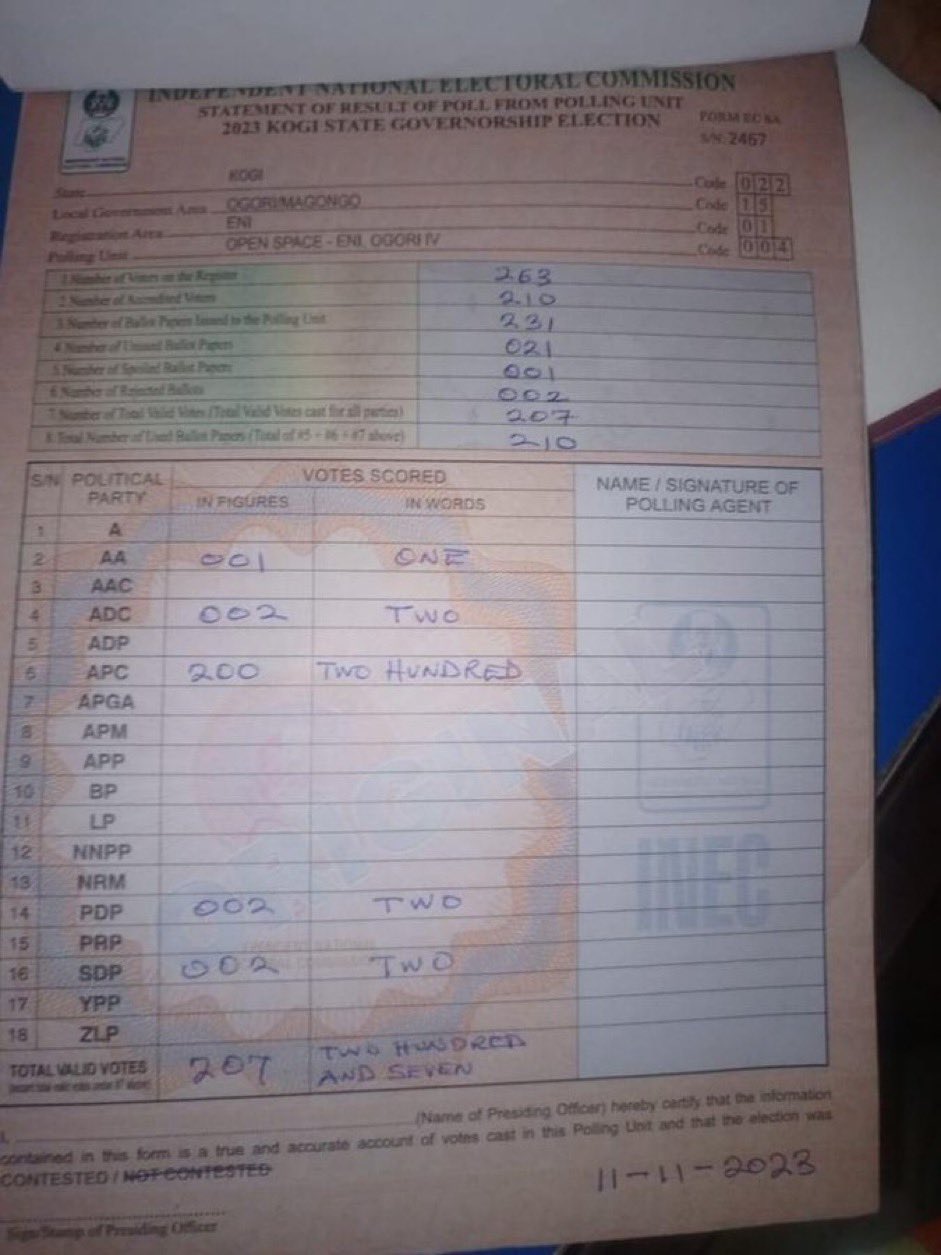 INDEPENDENT NATIONAL ELECTORAL COMMISSION
STATEMENT OF RESULT OF POLL FROM POLLING UNIT
2023 KOGI STATE GOVERNORSHIP ELECTION
FORM EC 8A
S/N: 2467
State KOGI Code 022
Local Government Area OGORI/MAGONGO Code 15
Registration Area ENI Code 01
Polling Unit OPEN SPACE - ENI, OGORI IV Code 004
1. Number of Voters on the Register 263
2. Number of Accredited Voters 210
3. Number of Ballot Papers Issued to the Polling Unit 231
4. Number of Unused Ballot Papers 021
5. Number of Spoiled Ballot Papers 001
6. Number of Rejected Ballots 002
7. Number of Total Valid Votes (Total Valid Votes cast for all parties) 207
8. Total Number of Used Ballot Papers (Total of #5 + #6 + #7 above) 210
S/N POLITICAL PARTY VOTES SCORED NAME / SIGNATURE OF POLLING AGENT
IN FIGURES IN WORDS
1 A
2 AA 001 ONE
3 AAC
4 ADC 002 TWO
5 ADP
6 APC 200 TWO HUNDRED
7 APGA
8 APM
9 APP
10 BP
11 LP
12 NNPP
13 NRM
14 PDP 002 TWO
15 PRP
16 SDP 002 TWO
17 YPP
18 ZLP
TOTAL VALID VOTES 207 TWO HUNDRED AND SEVEN
INEC
I, (Name of Presiding Officer) hereby certify that the information
contained in this form is a true and accurate account of votes cast in this Polling Unit and that the election was
CONTESTED / NOT CONTESTED
11-11-2023
Sign/Stamp of Presiding Officer